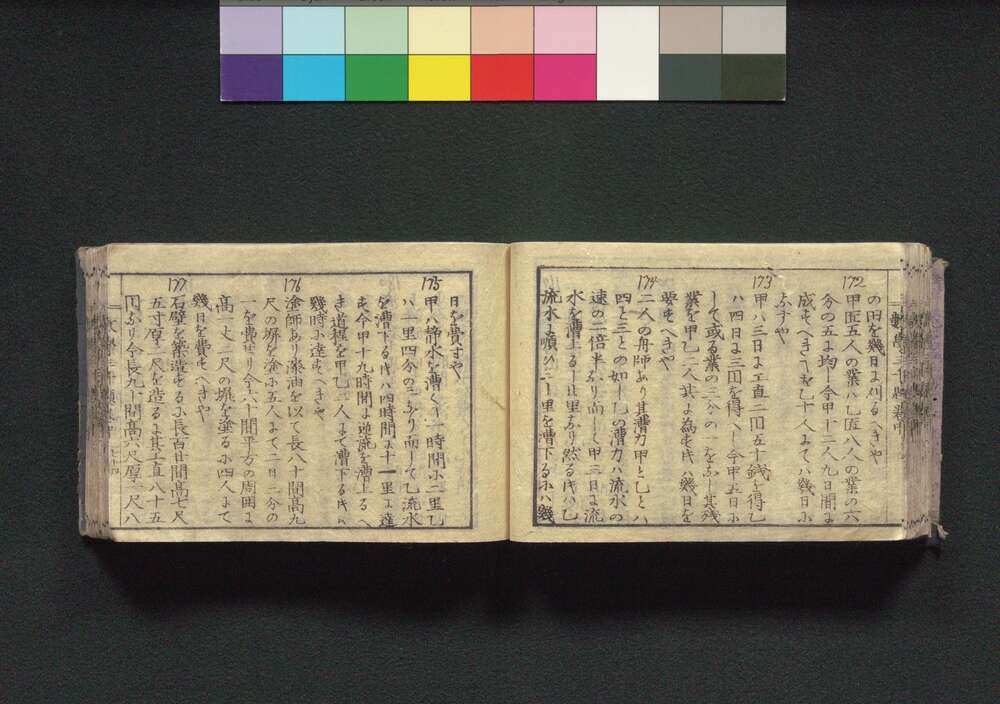 の田を幾日に刈るへきや
172
甲匠五人の業ハ乙匠八人の業の六
分の五に均し今甲十二人九日間に
成すへき
を乙十人にてハ幾日に
173
甲ハ三日に工直二円五十銭を得乙
ハ四日に三円を得へし今甲五日に
して或る業の三分の一を
し其残
業を甲乙二人其に為すときハ幾日を
要すへきや
174
二人の舟師あり其漕力甲と乙とハ
四と三との如し乙の漕力ハ流水の
速の二倍半
り而して甲三日に流
水を漕上る
里なり然るときハ乙
流水に順ひ
里を漕下るにハ幾
日を費すや
175
甲ハ静水を漕く
一時間に二里乙
ハ一里四分の三なり而して乙流水
を漕下るときハ四時間に十一里に達
す今甲十九時間に逆流を漕上るへ
き道程を甲乙二人にて漕下るときハ
幾時に達すへきや
176
塗師あり漆油を以て長八十間高九
尺の塀を塗るに五人にて二日二分の
一を費せり今六十間平方の周囲に
高一丈二尺の塀を塗るに四人にて
幾日を費すへきや
177
石壁を築造するに長百廿間高七尺
五寸厚二尺を造るに其工直八十五
円なり今長九十間高六尺厚一尺八